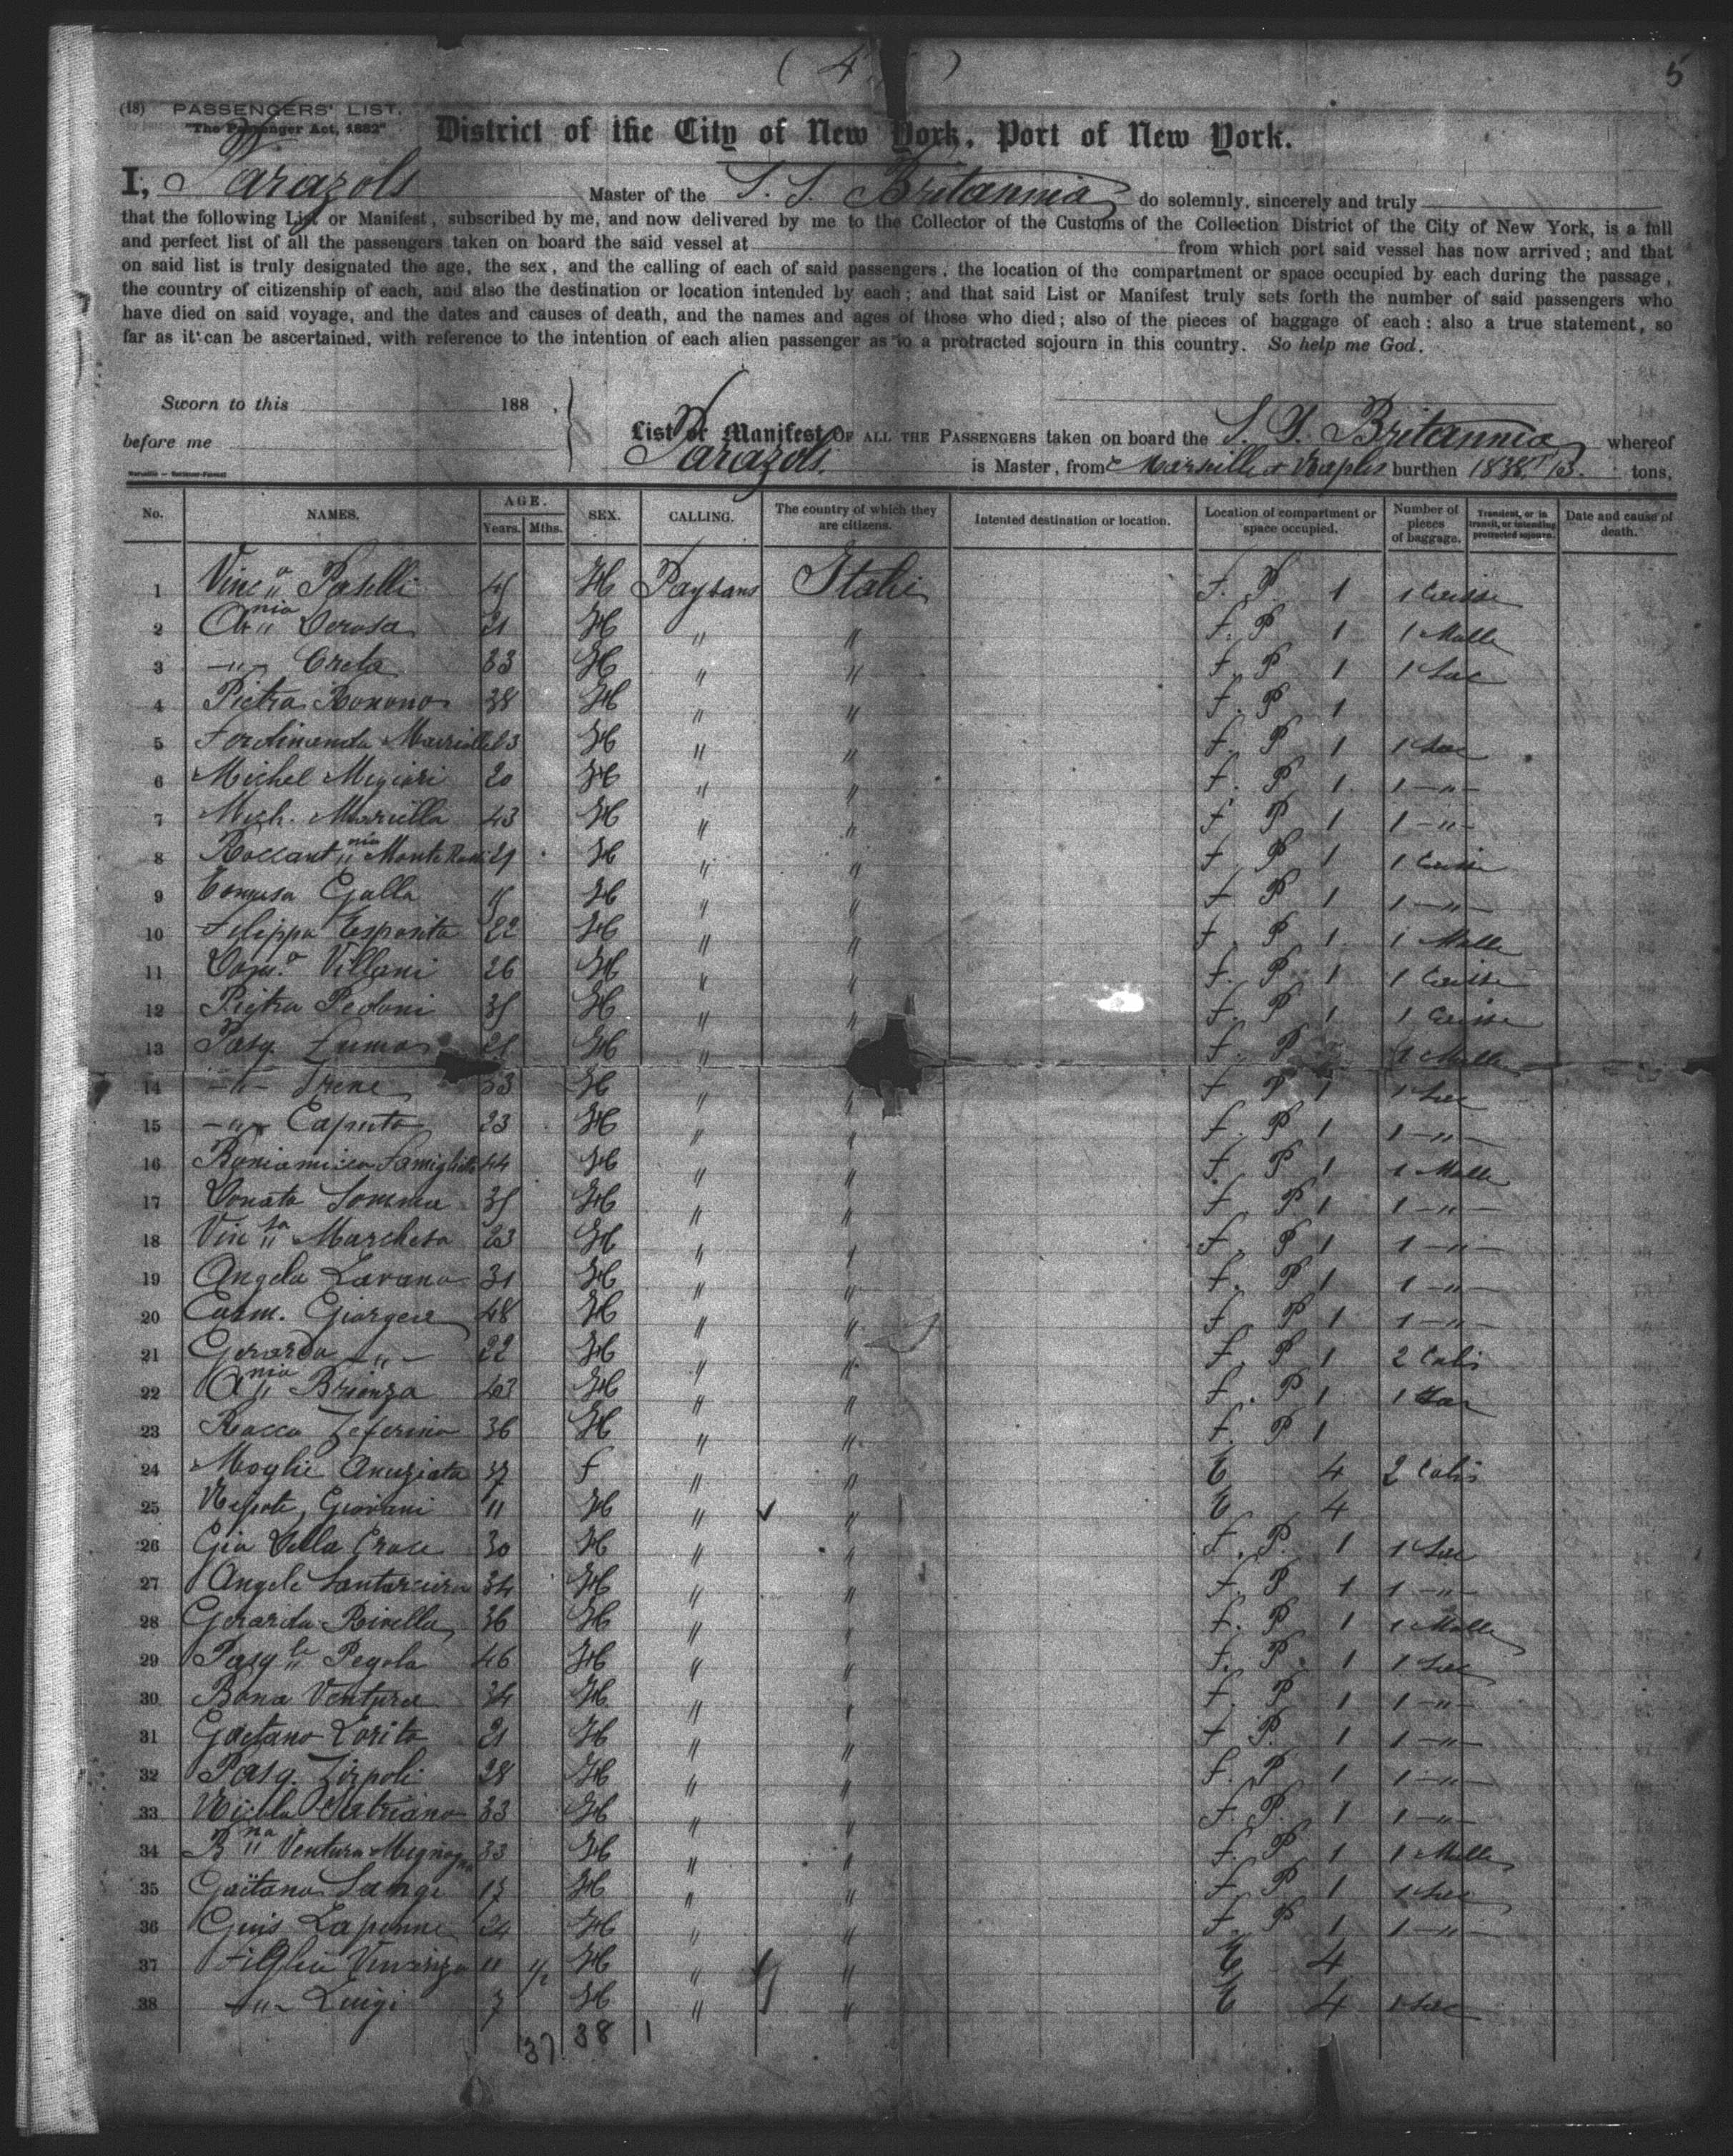 ( 4 )
5
(18) PASSENGERS' LIST.
"The Passenger Act, 1882"
District of the City of New York, Port of New York.
I, Varazols Master of the S. S. Britannia do solemnly, sincerely and truly
that the following List or Manifest, subscribed by me, and now delivered by me to the Collector of the Customs of the Collection District of the City of New York, is a full
and perfect list of all the passengers taken on board the said vessel at from which port said vessel has now arrived; and that
on said list is truly designated the age, the sex, and the calling of each of said passengers, the location of the compartment or space occupied by each during the passage,
the country of citizenship of each, and also the destination or location intended by each; and that said List or Manifest truly sets forth the number of said passengers who
have died on said voyage, and the dates and causes of death, and the names and ages of those who died; also of the pieces of baggage of each: also a true statement, so
far as it can be ascertained, with reference to the intention of each alien passenger as to a protracted sojourn in this country. So help me God.
Sworn to this 188 .
before me
List or Manifest OF ALL THE PASSENGERS taken on board the S. S. Britannia whereof
Varazols is Master, from Marseille & Naples burthen 1838 tons,
No. NAMES. AGE. Years. Mths. SEX. CALLING. The country of which they are citizens. Intented destination or location. Location of compartment or space occupied. Number of pieces of baggage. Transient, or in transit, or intending protracted sojourn. Date and cause of death.
1 Vinc " o Paselli 45 H Paysans Italie F. P. 1 1 Caisse
2 A " nio Derosa 21 H " " F. P 1 1 Malle
3 - " - Creta 33 H " " F. P 1 1 Sac
4 Pietra Bonono 38 H " " F. P 1
5 Ferdinanda 23 H " " F. P 1 1 Sac
6 Michel Migiori 20 H " " F. P 1 1 - " -
7 Mich. Mariella 43 H " " F P 1 1 - " -
8 29 H " " F. P 1 1 Caisse
9 Galla H " " F P 1 1 - " -
10 Filippa Esposita 22 H " " F. P 1 1 Malle
11 Dom.o Villani 26 H " " F. P 1 1 Caisse
12 Pietra Pedoni 35 H " " F. P 1 1 Caisse
13 Pasq. Luma 21 H " F. P 1 Malle
14 - " - Irene 33 H " " F. P 1 1 Sac
15 - " - Caputo 23 H " " F. P 1 1 - " -
16 Beniamico Famiglietti 44 H " " F. P 1 1 Malle
17 Donata Somma 35 H " " F. P 1 1 - " -
18 Vinc " Marchesa 23 H " " F. P 1 1 - " -
19 Angela Lavano 31 H " " F. P 1 1 - " -
20 Carm. Giorgese 48 H " " F. P 1 1 - " -
21 Gerardo - " - 22 H " " F. P 1 2 Colis
22 A " nio Brienza 43 H " " F. P 1 1 Sac
23 Rocco Zeferino 36 H " " F. P 1
24 Moglie Anuziata 37 F " " E 4 2 Colis
25 Nepote Giovani 11 H " " E 4
26 Gia Della Croce 30 H " " F. P. 1 1 Sac
27 Angele 34 H " " F. P 1 1 - " -
28 Gerarda Rivella 36 H " " F. P 1 1 Malle
29 Pasq " le Pegola 46 H " " F. P 1 1 Sac
30 Bona Ventura 34 H " " F. P 1 1 - " -
31 Gaetano Lorito 21 H " " F P. 1 1 - " -
32 Pasq. Zirpoli 28 H " " F. P 1 1 - " -
33 Nicola 33 H " " F. P. 1 1 - " -
34 B " na Ventura Mignogna 33 H " " F. P 1 1 Malle
35 Gaïtano 17 H " " F. P 1 1 Sac
36 Guis Lapenne 24 H " " F. P 1 1 - " -
37 Figlio Vincenzo 11 1/2 H " " E 4
38 - " - Luigi 7 H " " E 4 1 Sac
37 38 1